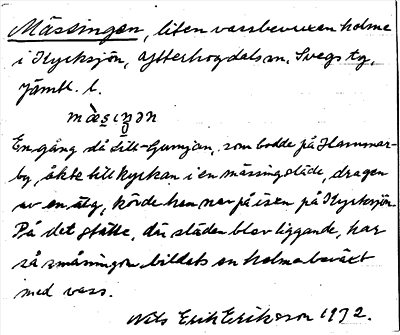 Mässingen, liten vassbevuxen holme
i Hycksjön, Ytterhogdals sn, Svegs tg,
Jämtl. l.
mæ̀sıŋən
En gång då Lill-Gumjan, som bodde på Hammar-
by, åkte till kyrkan i en mässingsläde, dragen
av en älg, körde han ner på isen på Hycksjön.
På det ställe, där släden blev liggande, har
så småningom bildats en holme beväxt
med vass.
Nils Erik Eriksson 1972.